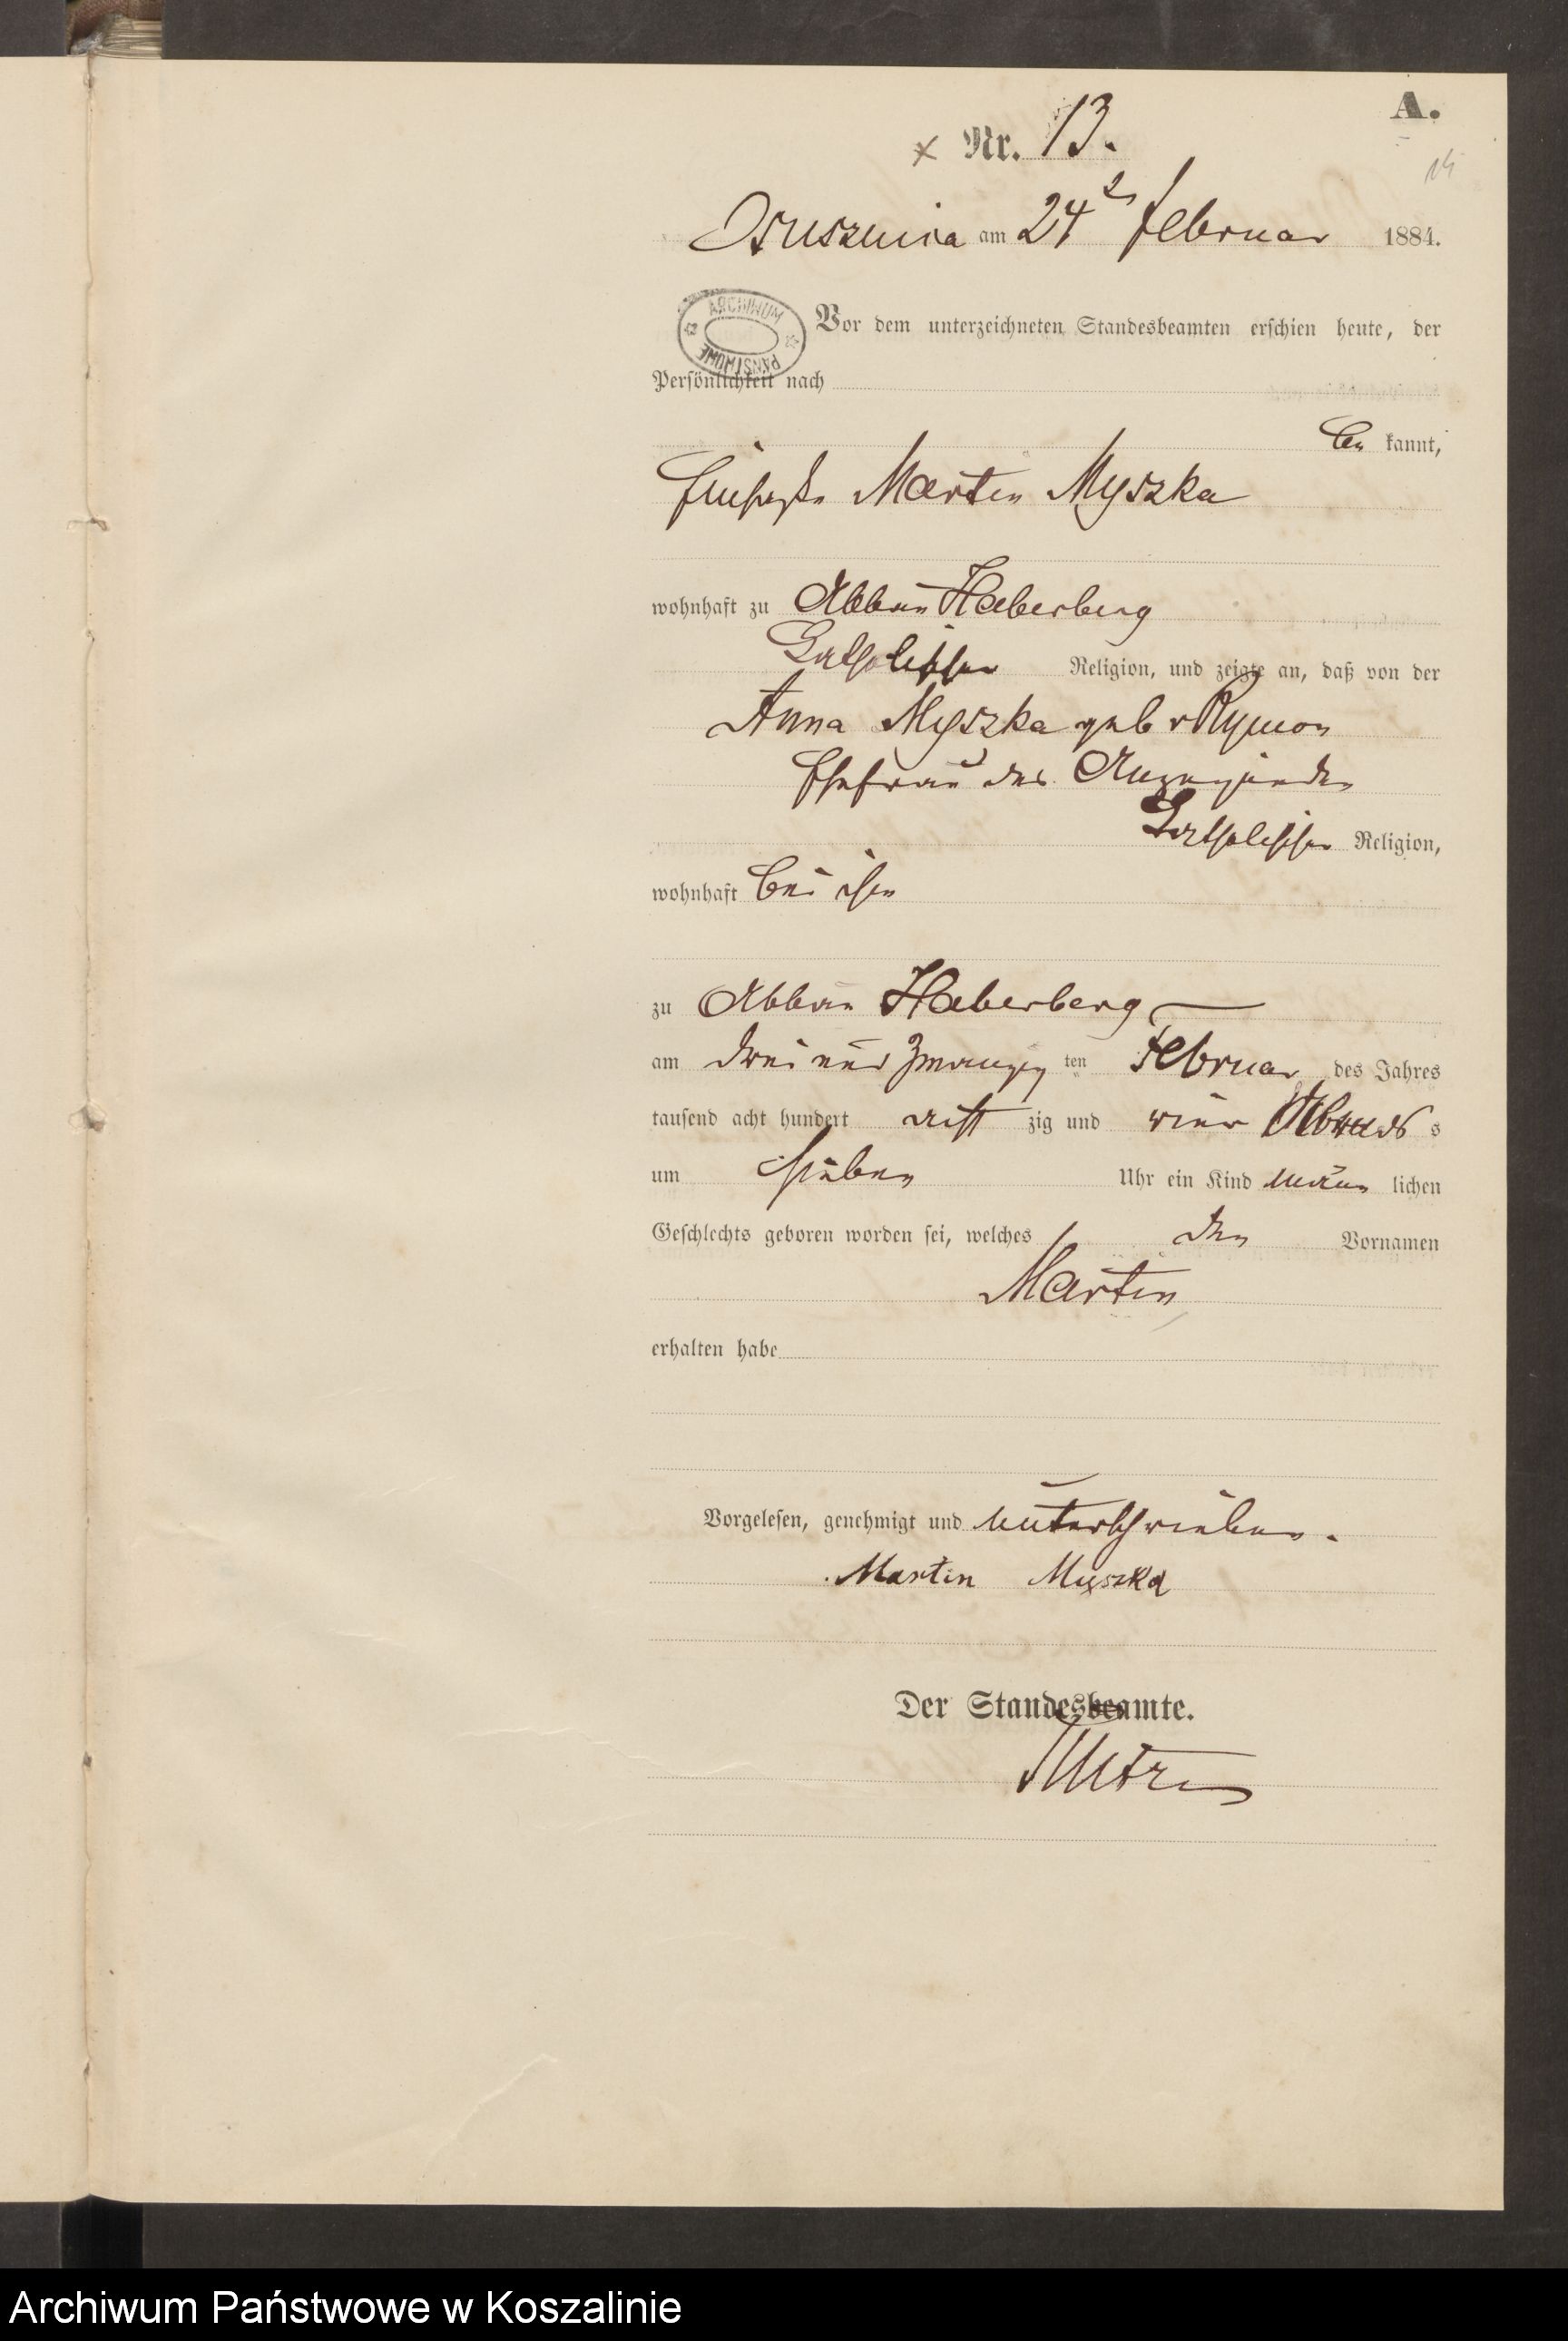 A.
Nr. 13.
14
Osusznica am 24ten Februar 1884.
ARCHIWUM PAŃSTWOWE
Vor dem unterzeichneten Standesbeamten erschien heute, der
Persönlichkeit nach
be kannt,
Martin Myszka
wohnhaft zu Abbau Haberberg
katholischer Religion, und zeigte an, daß von der
Anna Myszka geb
Ehefrau des Anzeigenden
katholischer Religion,
wohnhaft bei ihm
zu Abbau Haberberg
am drei und zwanzig ten Februar des Jahres
tausend acht hundert acht zig und vier Abends s
um sieben Uhr ein Kind männ lichen
Geschlechts geboren worden sei, welches den Vornamen
Martin
erhalten habe
Vorgelesen, genehmigt und unterschrieben.
Martin Myszka
Der Standesbeamte.
Archiwum Państwowe w Koszalinie